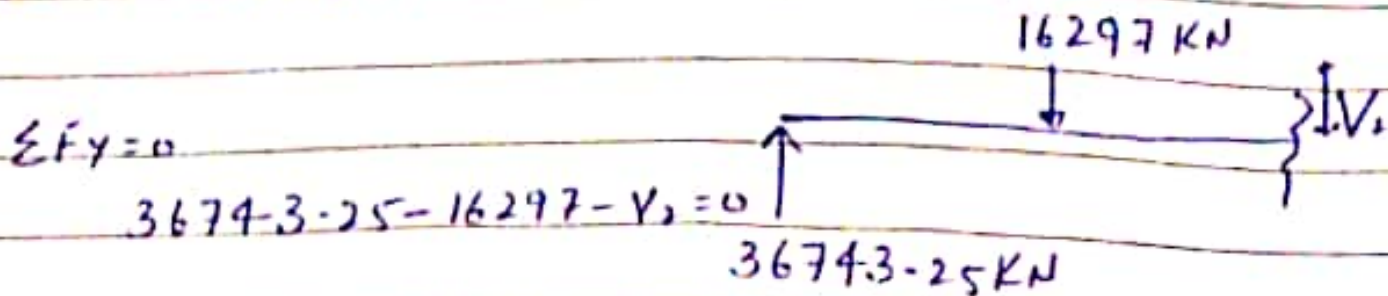 16297 KN
ΣFy=0
36743.25-16297-V₂=0
V₂
36743.25KN